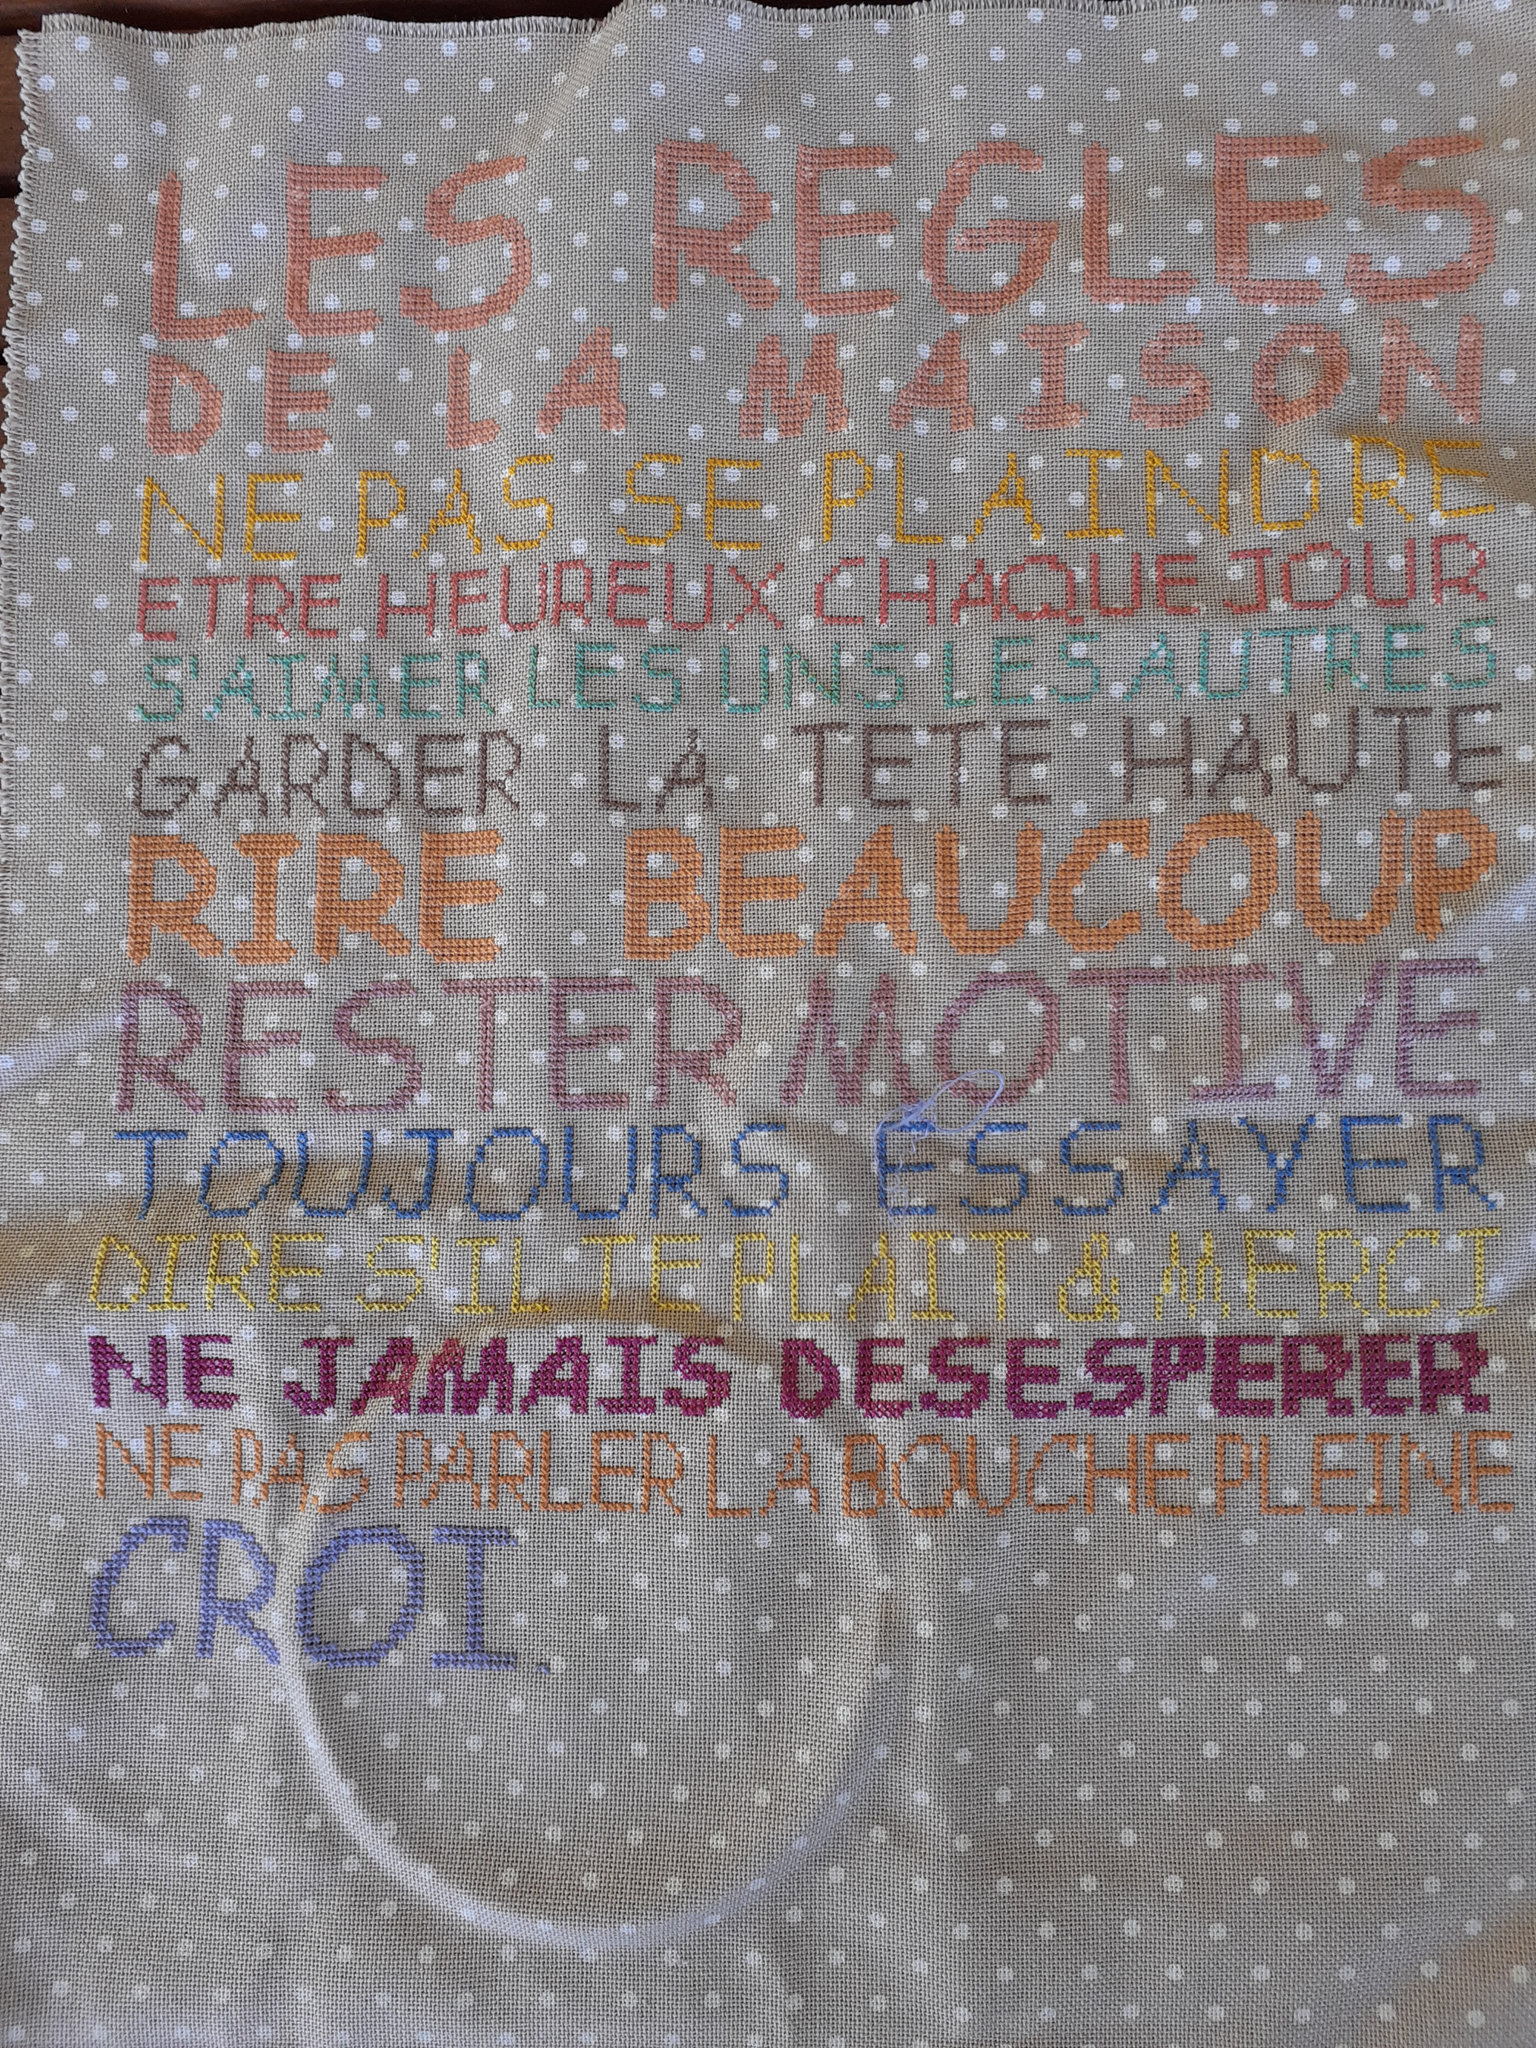 LES REGLES
DE LA MAISON
NE PAS SE PLAINDRE
ETRE HEUREUX CHAQUE JOUR
S'AIMER LES UNS LES AUTRES
GARDER LA TETE HAUTE
RIRE BEAUCOUP
RESTER MOTIVE
TOUJOURS ESSAYER
DIRE S'IL TE PLAIT & MERCI
NE JAMAIS DESESPERER
NE PAS PARLER LA BOUCHE PLEINE
CROI